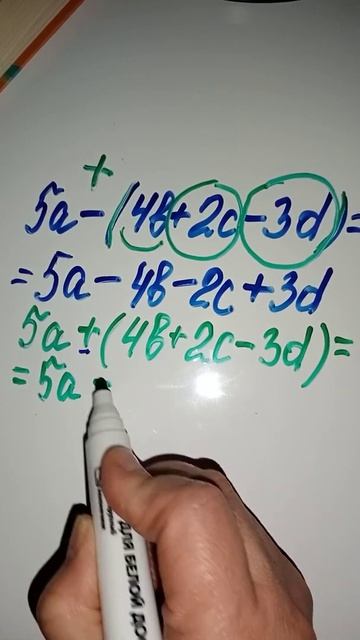 +
5a-(4b+2c-3d)=
=5a-4b-2c+3d
5a±(4b+2c-3d)=
=5a
ДЛЯ БЕЛОЙ ДО